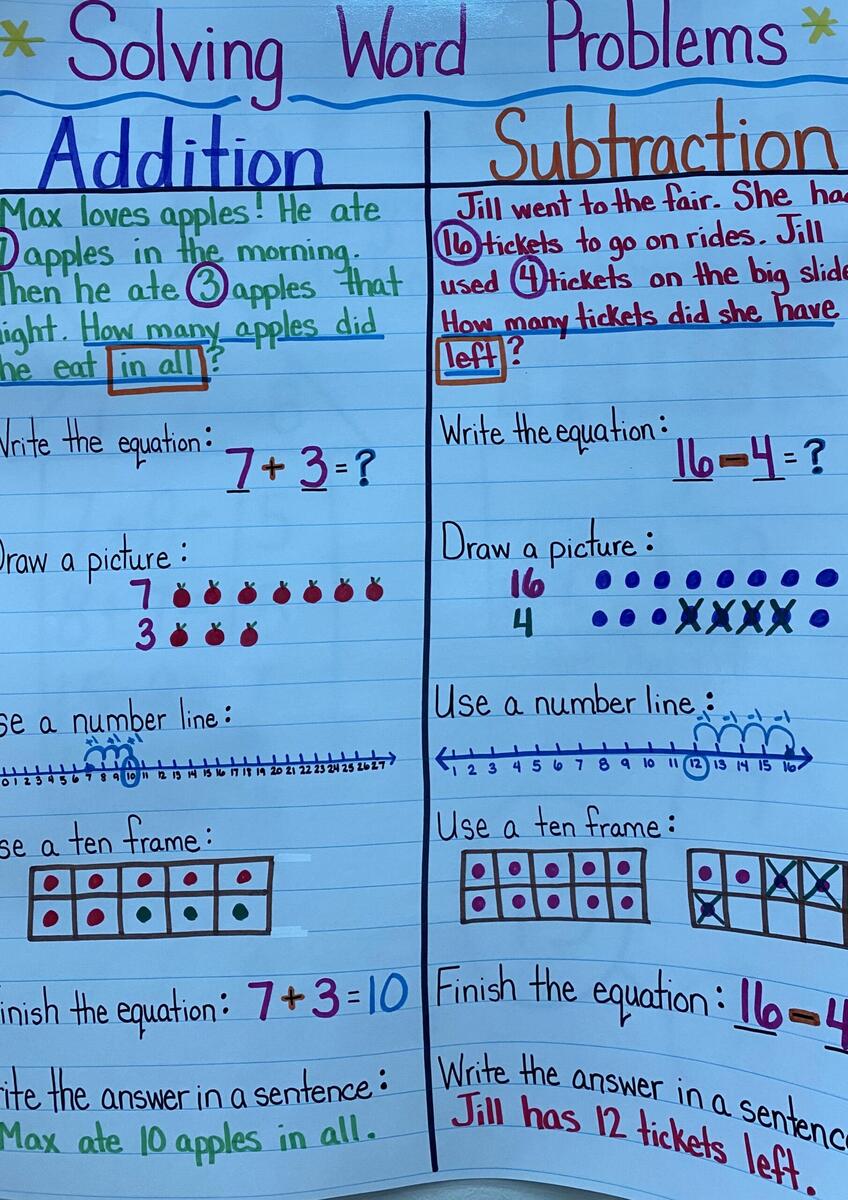 * Solving Word Problems *
Addition
Max loves apples! He ate
7 apples in the morning.
Then he ate 3 apples that
ight. How many apples did
he eat in all?
Write the equation:
7 + 3 = ?
Draw a picture:
7
3
se a number line:
+1 +1 +1
0 1 2 3 4 5 6 7 8 9 10 11 12 13 14 15 16 17 18 19 20 21 22 23 24 25 26 27
se a ten frame:
inish the equation: 7 + 3 = 10
rite the answer in a sentence:
Max ate 10 apples in all.
Subtraction
Jill went to the fair. She ha
16 tickets to go on rides. Jill
used 4 tickets on the big slide
How many tickets did she have
left?
Write the equation:
16 - 4 = ?
Draw a picture:
16
4
Use a number line:
-1 -1 -1 -1
1 2 3 4 5 6 7 8 9 10 11 12 13 14 15 16
Use a ten frame:
Finish the equation: 16 - 4
Write the answer in a sentenc
Jill has 12 tickets left.